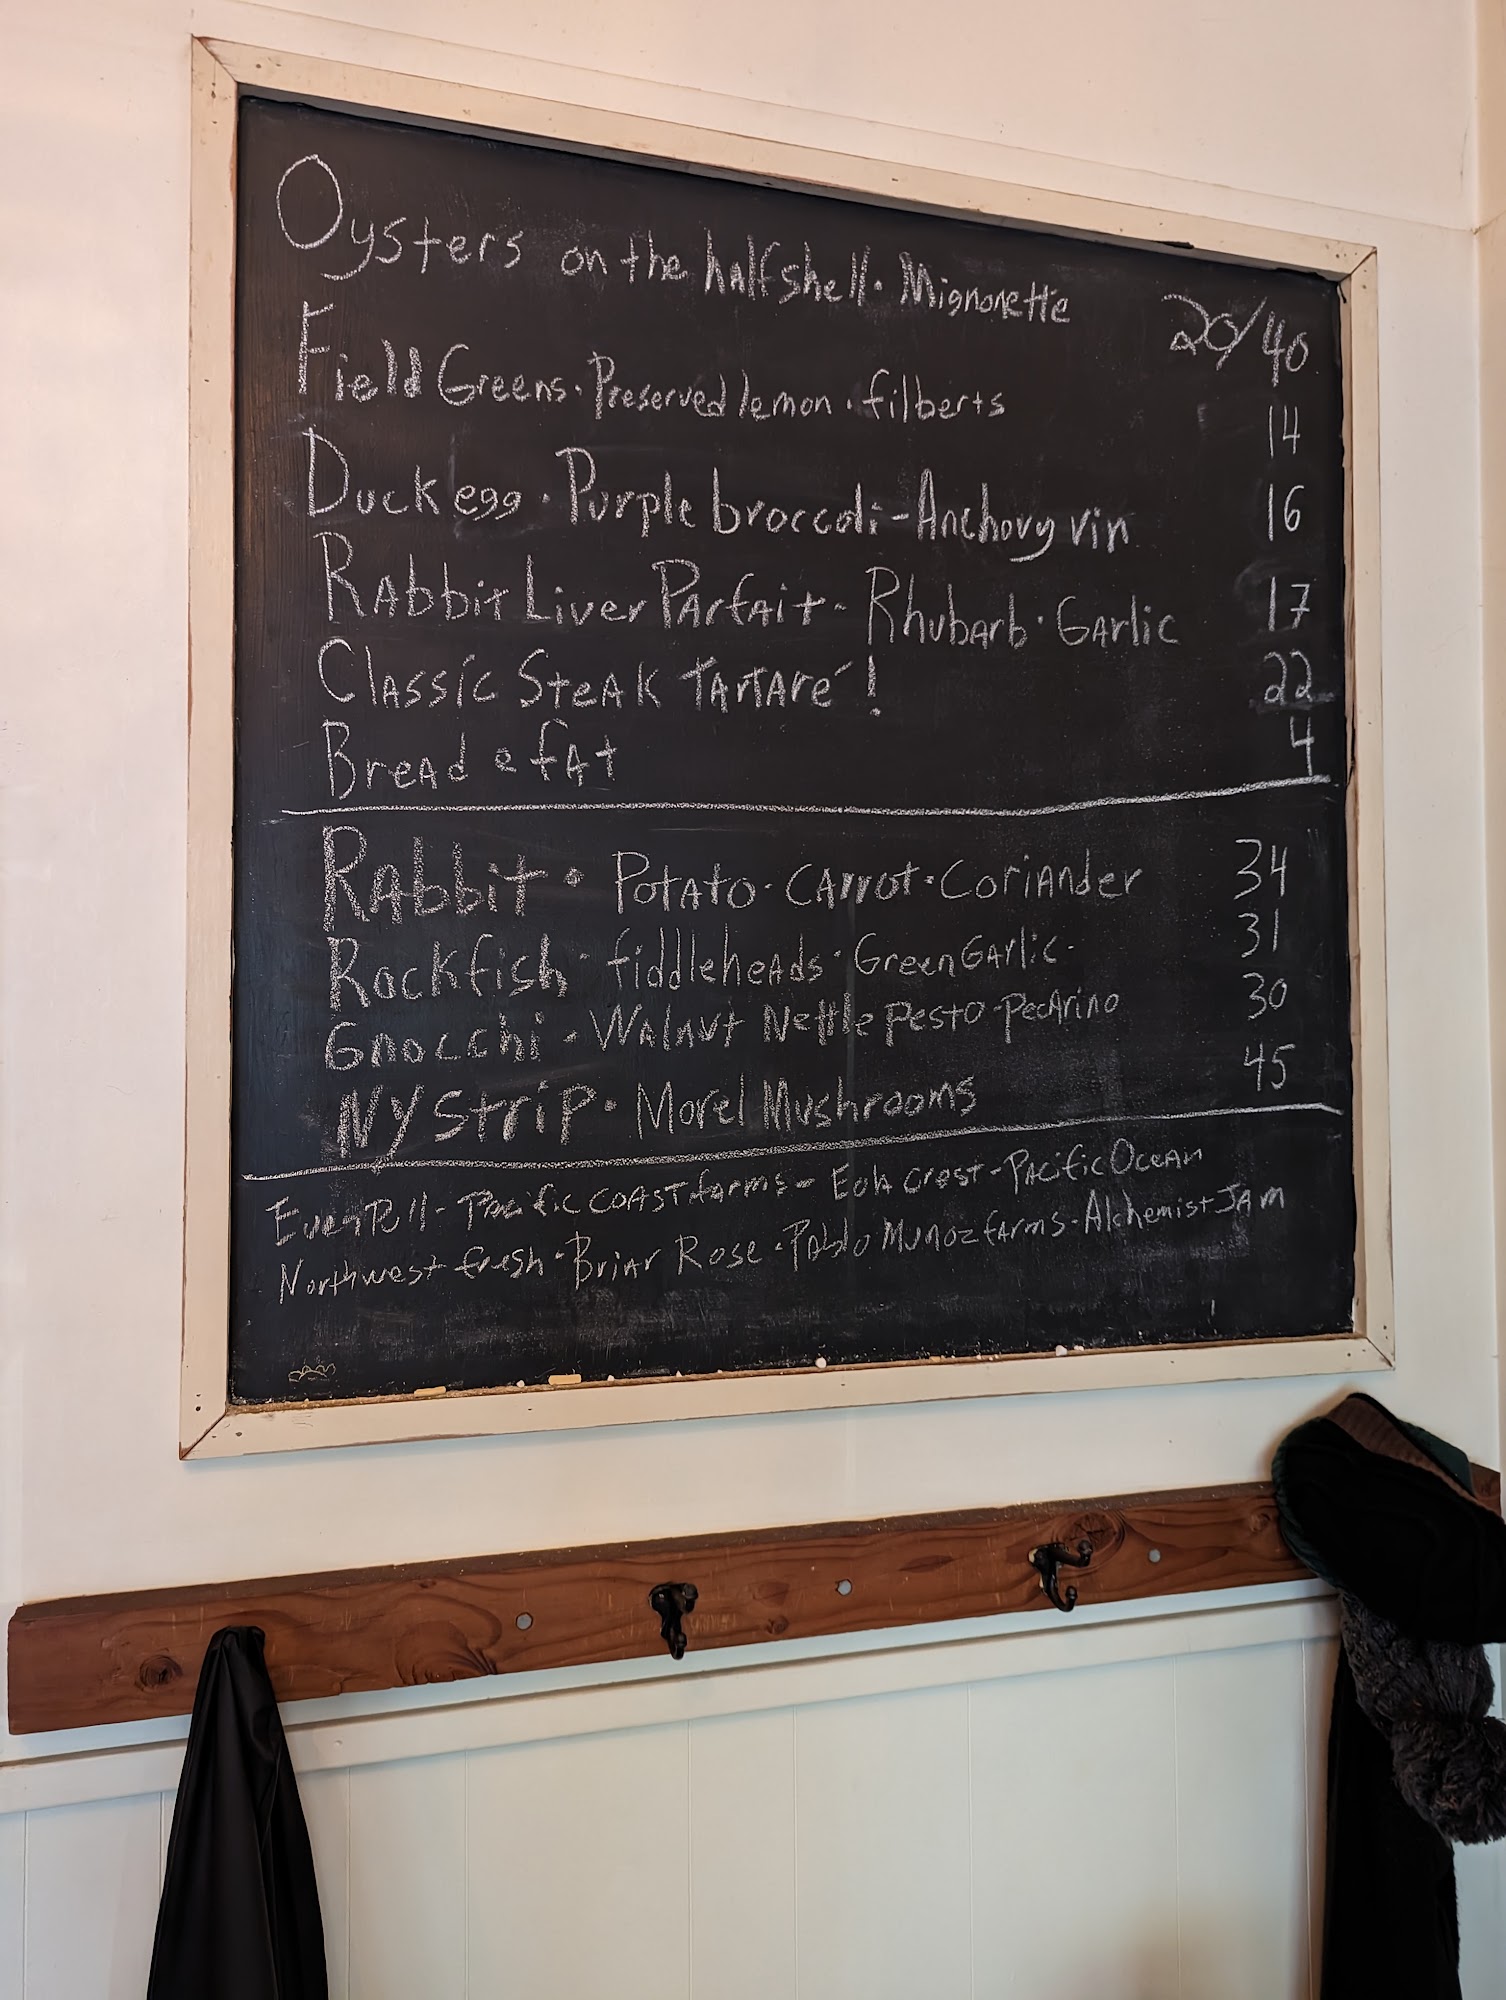 Oysters on the half shell · Mignonette 20/40
Field Greens · Preserved lemon · filberts 14
Duck egg · Purple broccoli - Anchovy vin 16
Rabbit Liver Parfait - Rhubarb · Garlic 17
Classic Steak Tartaré! 22
Bread & fat 4
Rabbit · Potato · Carrot · Coriander 34
Rockfish · fiddleheads · Green Garlic · 31
Gnocchi · Walnut Nettle pesto · pecarino 30
NY Strip · Morel Mushrooms 45
Pacific Coast farms - Eola Crest - Pacific Ocean
Northwest fresh · Briar Rose · Pablo Munoz farms · Alchemist JAM